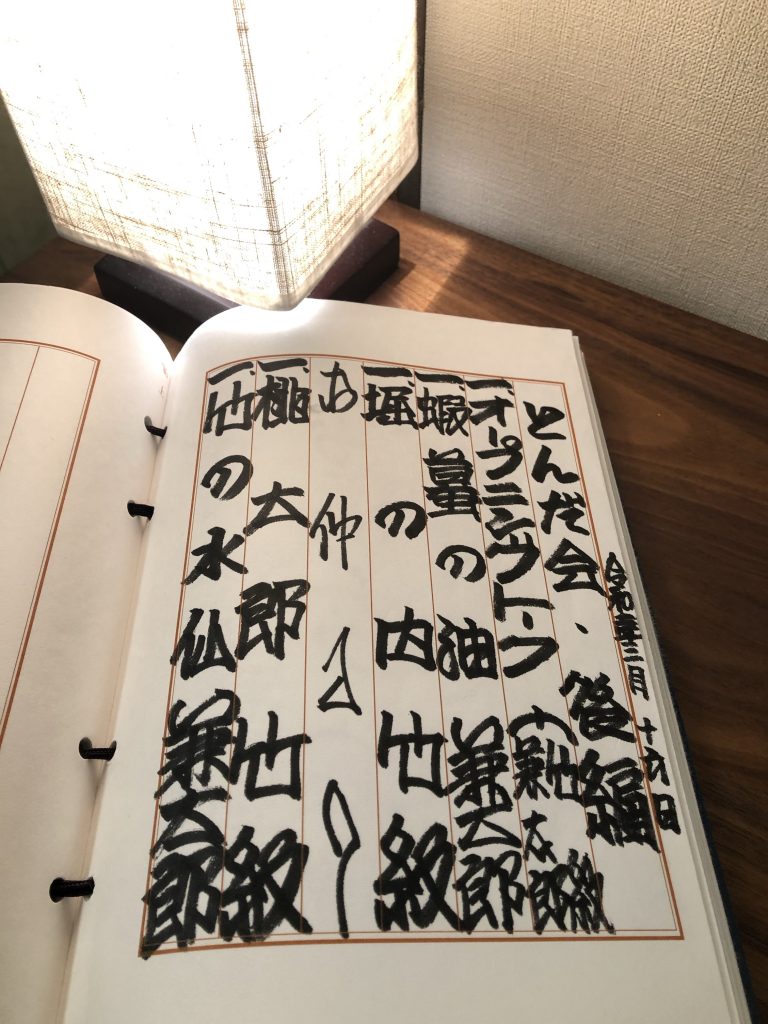 令和
月 十六日
とんだ会、後編
一、オープニングトーク 竹紋 兼太郎
一、蝦蟇の油 兼太郎
一、堀の内 竹紋
お仲入り
一、桃太郎 竹紋
一、竹の水仙 兼太郎